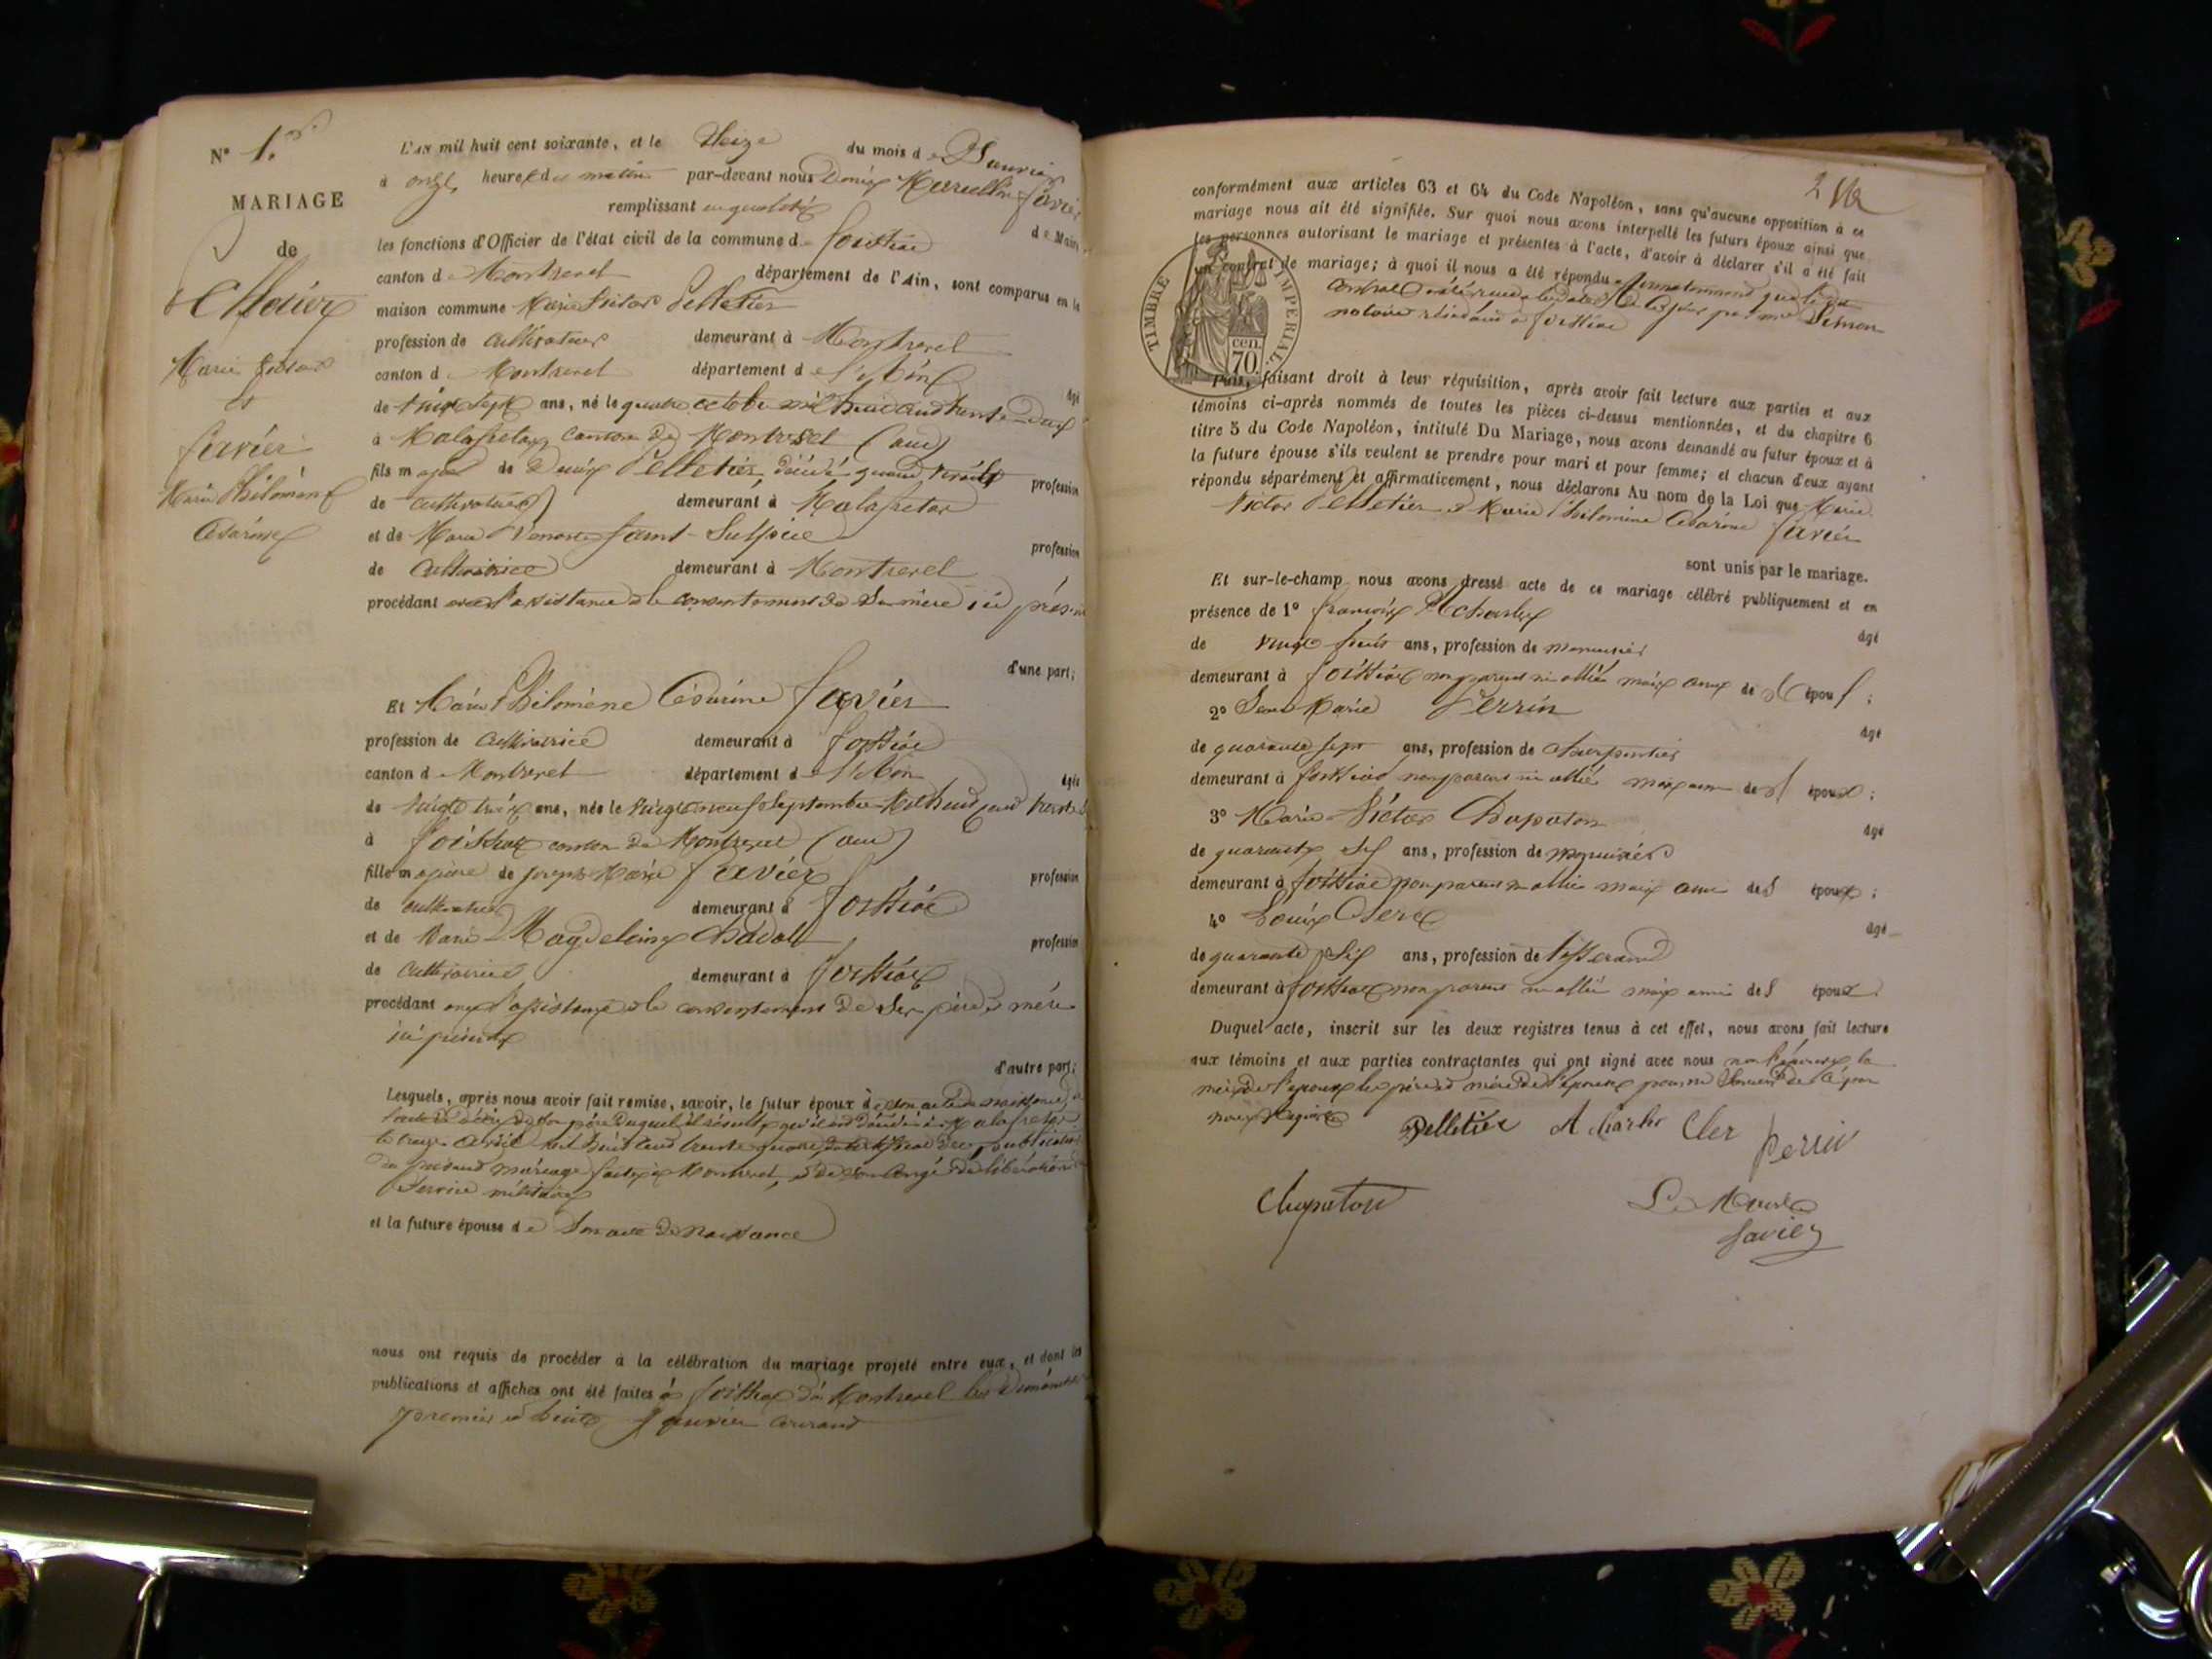 N° 1.er
MARIAGE
de
Marie Victor
et
favier
Marie Philomène
Césarine
L'AN mil huit cent soixante, et le Seize du mois de Janvier
à onze heures du matin par-devant nous Denis Marcellin favier
remplissant en qualité de Maire
les fonctions d'Officier de l'état civil de la commune de foissiat
canton de Montrevel département de l'Ain, sont comparus en la
maison commune Marie Victor Pelletier
profession de cultivateur demeurant à Montrevel
canton de Montrevel département de l'Ain âgé
de vingt sept ans, né le quatre octobre mil huit cent trente deux
à Malafretaz canton de Montrevel (ain)
fils majeur de Denis Pelletier, décédé quand vivait profession
de cultivateur demeurant à Malafretaz
et de Marie saint-Sulpice profession
de cultivatrice demeurant à Montrevel
procédant avec l'assistance et le consentement de Sa mère ici présente
d'une part;
Et Marie Philomène Césarine favier
profession de cultivatrice demeurant à foissiat
canton de Montrevel département de l'Ain âgée
de vingt trois ans, née le vingt neuf Septembre mil huit cent trente
à foissiat canton de Montrevel (ain)
fille majeure de joseph Marie favier profession
de cultivateur demeurant à foissiat
et de Marie Magdeleine profession
de cultivatrice demeurant à foissiat
procédant avec l'assistance et le consentement de Ses père et mère
ici présents
d'autre part;
Lesquels, après nous avoir fait remise, savoir, le futur époux de son acte de naissance, de
de son père duquel il résulte qu'il est décédé à Malafretaz
le avril mil huit cent trente quatre des publications
du présent mariage faites à Montrevel, et de son congé de libération du
Service militaire
et la future épouse de Son acte de naissance
nous ont requis de procéder à la célébration du mariage projeté entre eux, et dont les
publications et affiches ont été faites à foissiat et à Montrevel les Dimanches
premier et huit Janvier courant
conformément aux articles 63 et 64 du Code Napoléon, sans qu'aucune opposition à ce
mariage nous ait été signifiée. Sur quoi nous avons interpellé les futurs époux ainsi que
les personnes autorisant le mariage et présentes à l'acte, d'avoir à déclarer s'il a été fait
un contrat de mariage; à quoi il nous a été répondu affirmativement que le dit
contrat a été reçu par me Simon
notaire résidant à foissiat
TIMBRE IMPERIAL.
cen.
70.
Puis, faisant droit à leur réquisition, après avoir fait lecture aux parties et aux
témoins ci-après nommés de toutes les pièces ci-dessus mentionnées, et du chapitre 6
titre 5 du Code Napoléon, intitulé Du Mariage, nous avons demandé au futur époux et à
la future épouse s'ils veulent se prendre pour mari et pour femme; et chacun d'eux ayant
répondu séparément et affirmativement, nous déclarons Au nom de la Loi que Marie
Victor Pelletier et Marie Philomène Césarine favier
sont unis par le mariage.
Et sur-le-champ nous avons dressé acte de ce mariage célébré publiquement et en
présence de 1° françois âgé
de vingt ans, profession de menuisier
demeurant à foissiat non parent ni allié mais ami des époux;
2° Jean Marie Perrin âgé
de quarante sept ans, profession de charpentier
demeurant à foissiat non parent ni allié mais ami des époux;
3° Marie Victor Chapaton âgé
de quarante ans, profession de menuisier
demeurant à foissiat non parent ni allié mais ami des époux;
4° Louis Clerc âgé
de quarante ans, profession de tisserand
demeurant à foissiat non parent ni allié mais ami des époux
Duquel acte, inscrit sur les deux registres tenus à cet effet, nous avons fait lecture
aux témoins et aux parties contractantes qui ont signé avec nous non l'épouse la
mère de l'époux les père et mère de l'épouse pour ne Savoir de ce par
nous requis
Pelletier Clerc Perrin
Chapaton Le Maire
favier